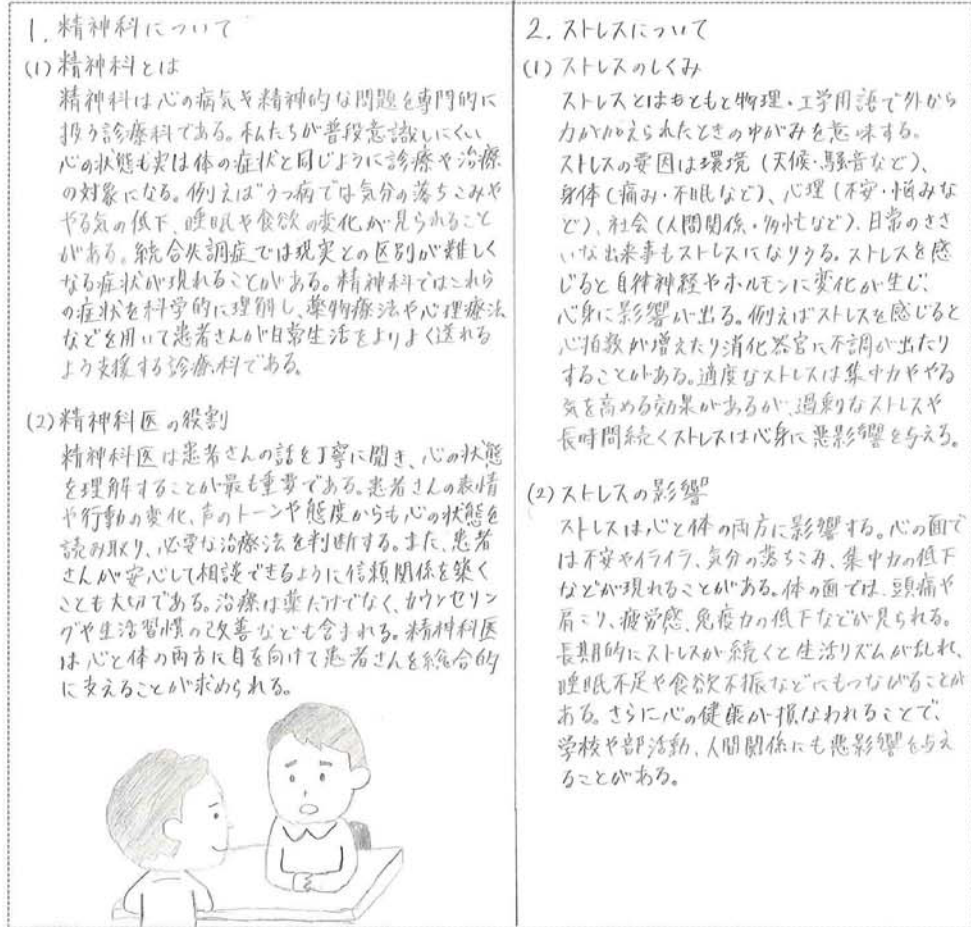 1. 精神科について
(1) 精神科とは
精神科は心の病気や精神的な問題を専門的に
扱う診療科である。私たちが普段意識しにくい
心の状態も実は体の症状と同じように診療や治療
の対象になる。例えばうつ病では気分の落ちこみや
やる気の低下、睡眠や食欲の変化が見られること
がある。統合失調症では現実との区別が難しく
なる症状が現れることがある。精神科ではこれら
の症状を科学的に理解し、薬物療法や心理療法
などを用いて患者さんが日常生活をよりよく送れる
よう支援する診療科である。
(2) 精神科医の役割
精神科医は患者さんの話を丁寧に聞き、心の状態
を理解することが最も重要である。患者さんの表情
や行動の変化、声のトーンや態度からも心の状態を
読み取り、必要な治療法を判断する。また、患者
さんが安心して相談できるように信頼関係を築く
ことも大切である。治療は薬だけでなく、カウンセリン
グや生活習慣の改善なども含まれる。精神科医
は心と体の両方に目を向けて患者さんを総合的
に支えることが求められる。
2. ストレスについて
(1) ストレスのしくみ
ストレスとはもともと物理・工学用語で外から
力が加えられたときのゆがみを意味する。
ストレスの要因は環境(天候・騒音など)、
身体(痛み・不眠など)、心理(不安・悩みな
ど)、社会(人間関係・多忙など)、日常のささ
いな出来事もストレスになりうる。ストレスを感
じると自律神経やホルモンに変化が生じ、
心身に影響が出る。例えばストレスを感じると
心拍数が増えたり消化器官に不調が出たり
することがある。適度なストレスは集中力ややる
気を高める効果があるが、過剰なストレスや
長時間続くストレスは心身に悪影響を与える。
(2) ストレスの影響
ストレスは心と体の両方に影響する。心の面で
は不安やイライラ、気分の落ちこみ、集中力の低下
などが現れることがある。体の面では、頭痛や
肩こり、疲労感、免疫力の低下などが見られる。
長期的にストレスが続くと生活リズムが乱れ、
睡眠不足や食欲不振などにもつながることが
ある。さらに心の健康が損なわれることで、
学校や部活動、人間関係にも悪影響を与え
ることがある。